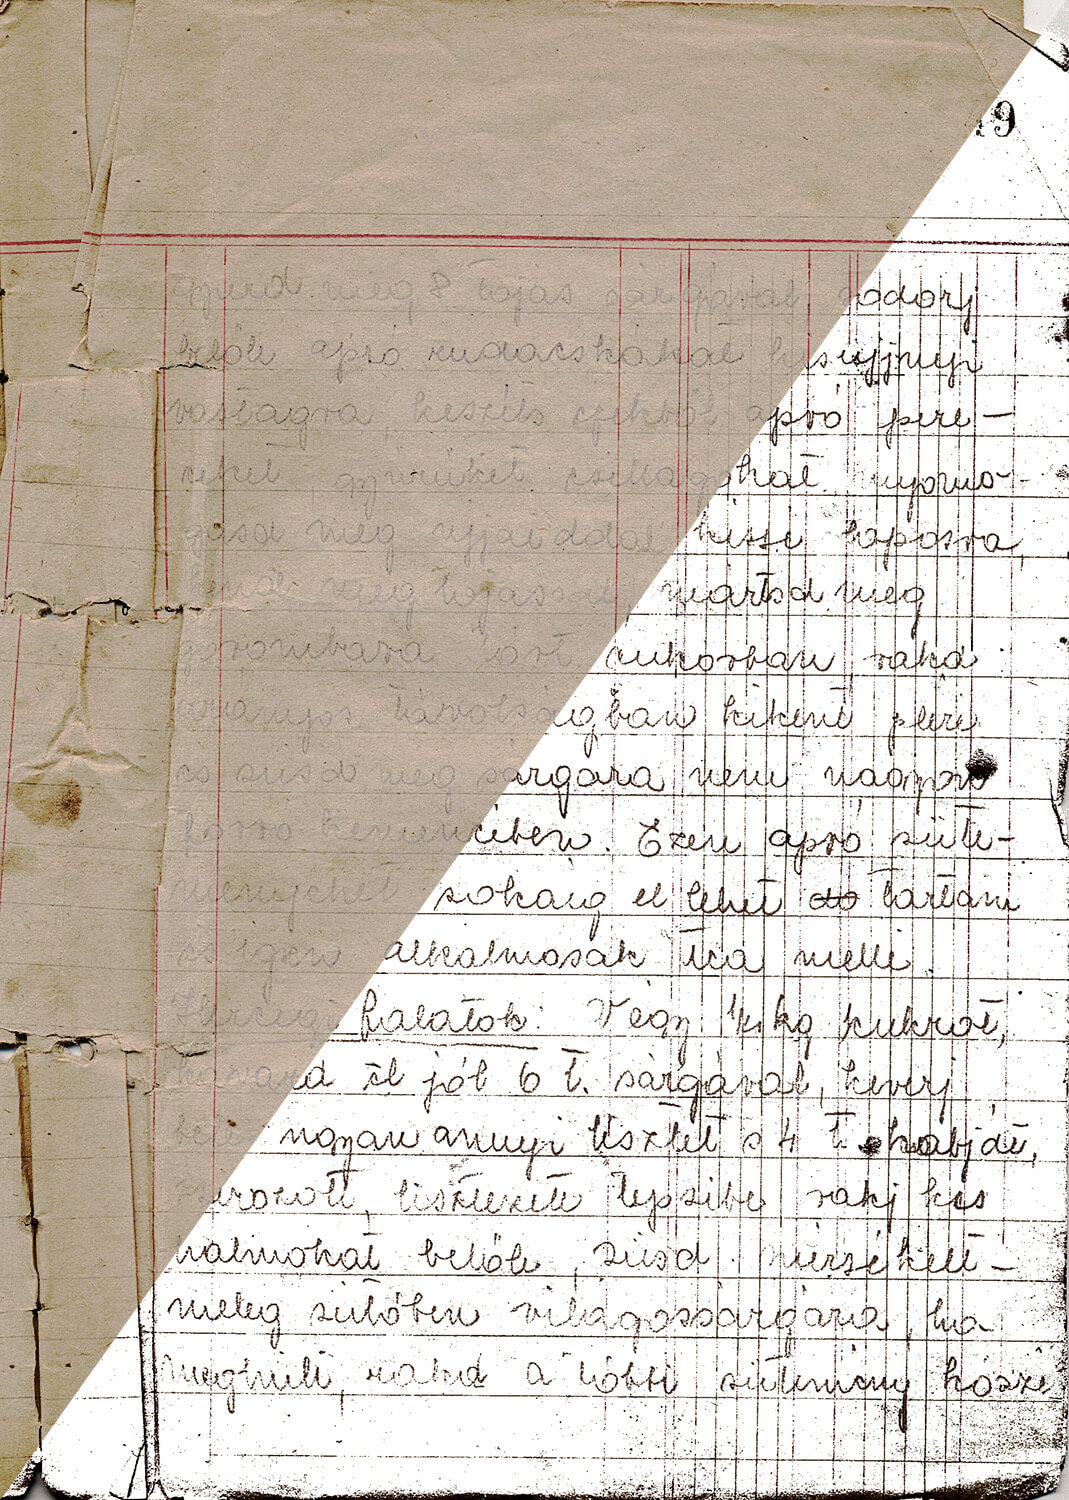 19
gyurd meg 8 tojás sárgával, sodorj
belőle apró rudacskákat kisujjnyi
vastagra, készíts ezekből apró pere-
ceket, gyűrűket csillagokat nyomo-
gasd meg ujjaiddal kissé laposra,
kend meg tojással, mártsd meg
gorombára tört cukorban, rakd
arányos távolságban kikent plére
és süsd meg sárgára nem nagyon
forró kemencében. Ezen apró süte-
ményeket sokáig el lehet tartani
és igen alkalmosak téa mellé.
Hercegi falatok: Végy 1/4 kg cukrot,
kavard el jól 6 t. sárgával, keverj
bele ugyan annyi lisztet s 4 t. habját,
zsírozott, lisztezett tepsibe rakj kis
halmokat belőle, süsd mérsékelt-
meleg sütőben világossárgára, ha
meghült, rakd a többi sütemény közzé